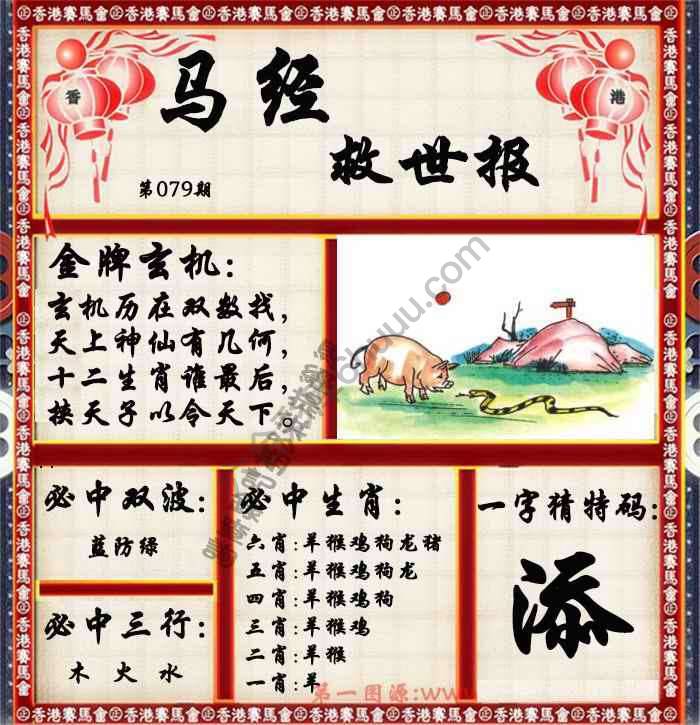 香 港
马经
救世报
第079期
金牌玄机:
玄机历在双数找,
天上神仙有几何,
十二生肖谁最后,
挟天子以令天下。
必中双波:
蓝防绿
必中三行:
木 火 水
必中生肖:
六肖:羊猴鸡狗龙猪
五肖:羊猴鸡狗龙
四肖:羊猴鸡狗
三肖:羊猴鸡
二肖:羊猴
一肖:羊
一字猜特码:
添
第一图源:www
香港賽馬會